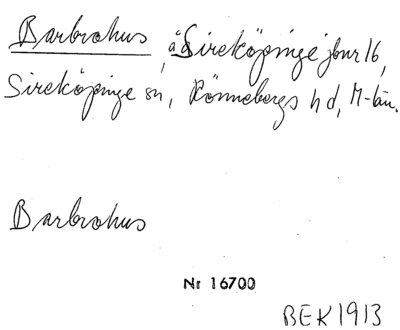 Barbrohus, å Sireköpinge jbnr 16,
Sireköpinge sn, Rönnebergs hd, M-län.
Barbrohus
Nr 16700
BEK 1913